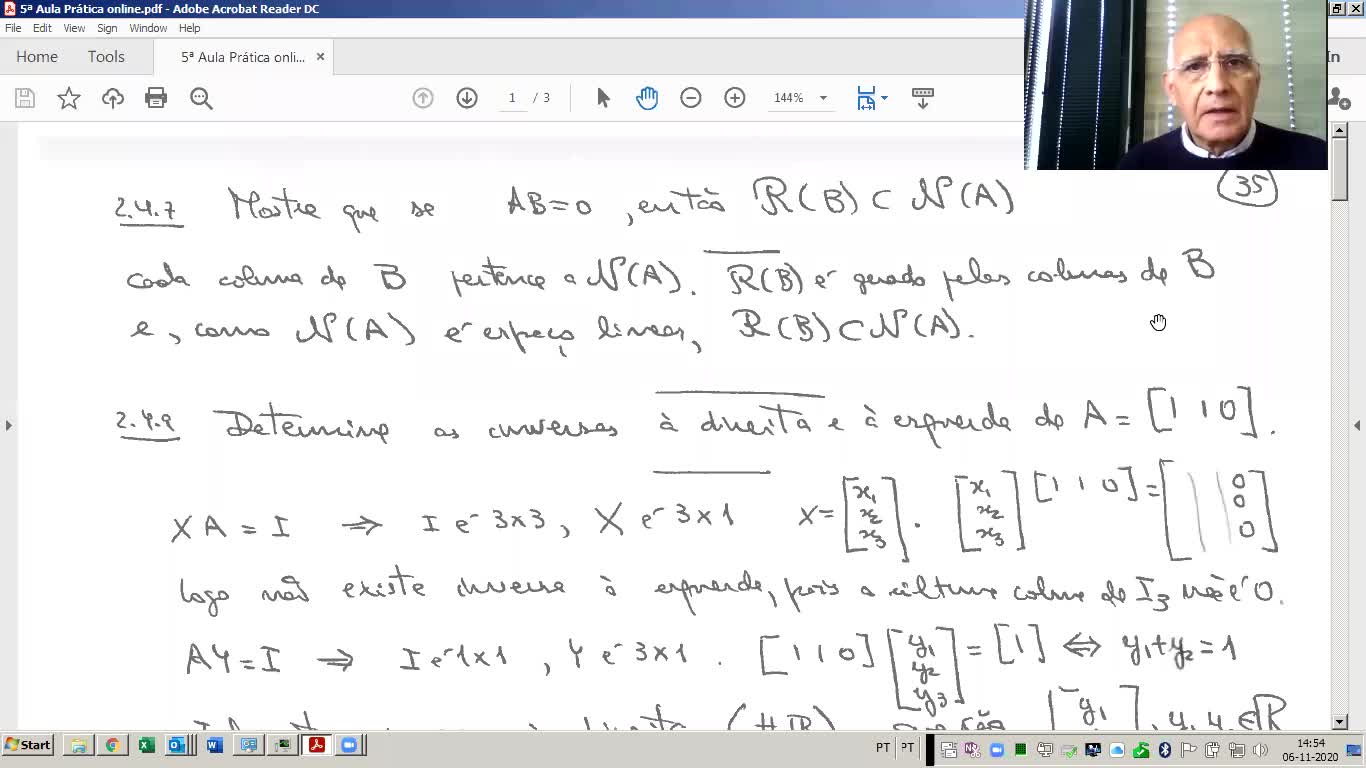 5ª Aula Prática online.pdf - Adobe Acrobat Reader DC
File Edit View Sign Window Help
Home Tools 5ª Aula Prática onli... × In
1 / 3 144%
35
2.4.7 Mostre que se AB=0, então R(B) ⊂ N(A)
Cada coluna de B pertence a N(A). R(B) é gerado pelas colunas de B
e, como N(A) é espaço linear, R(B) ⊂ N(A).
2.4.9 Determine as inversas à direita e à esquerda de A = [1 1 0].
XA = I ⇒ I é 3x3, X é 3x1 X = [x1 x2 x3]. [x1 x2 x3] [1 1 0] = [0 0 0]
Logo não existe inversa à esquerda, pois a última coluna de I3 não é 0.
AY = I ⇒ I é 1x1, Y é 3x1. [1 1 0] [y1 y2 y3] = [1] ⇔ y1+y2=1
Start PT PT 14:54
06-11-2020